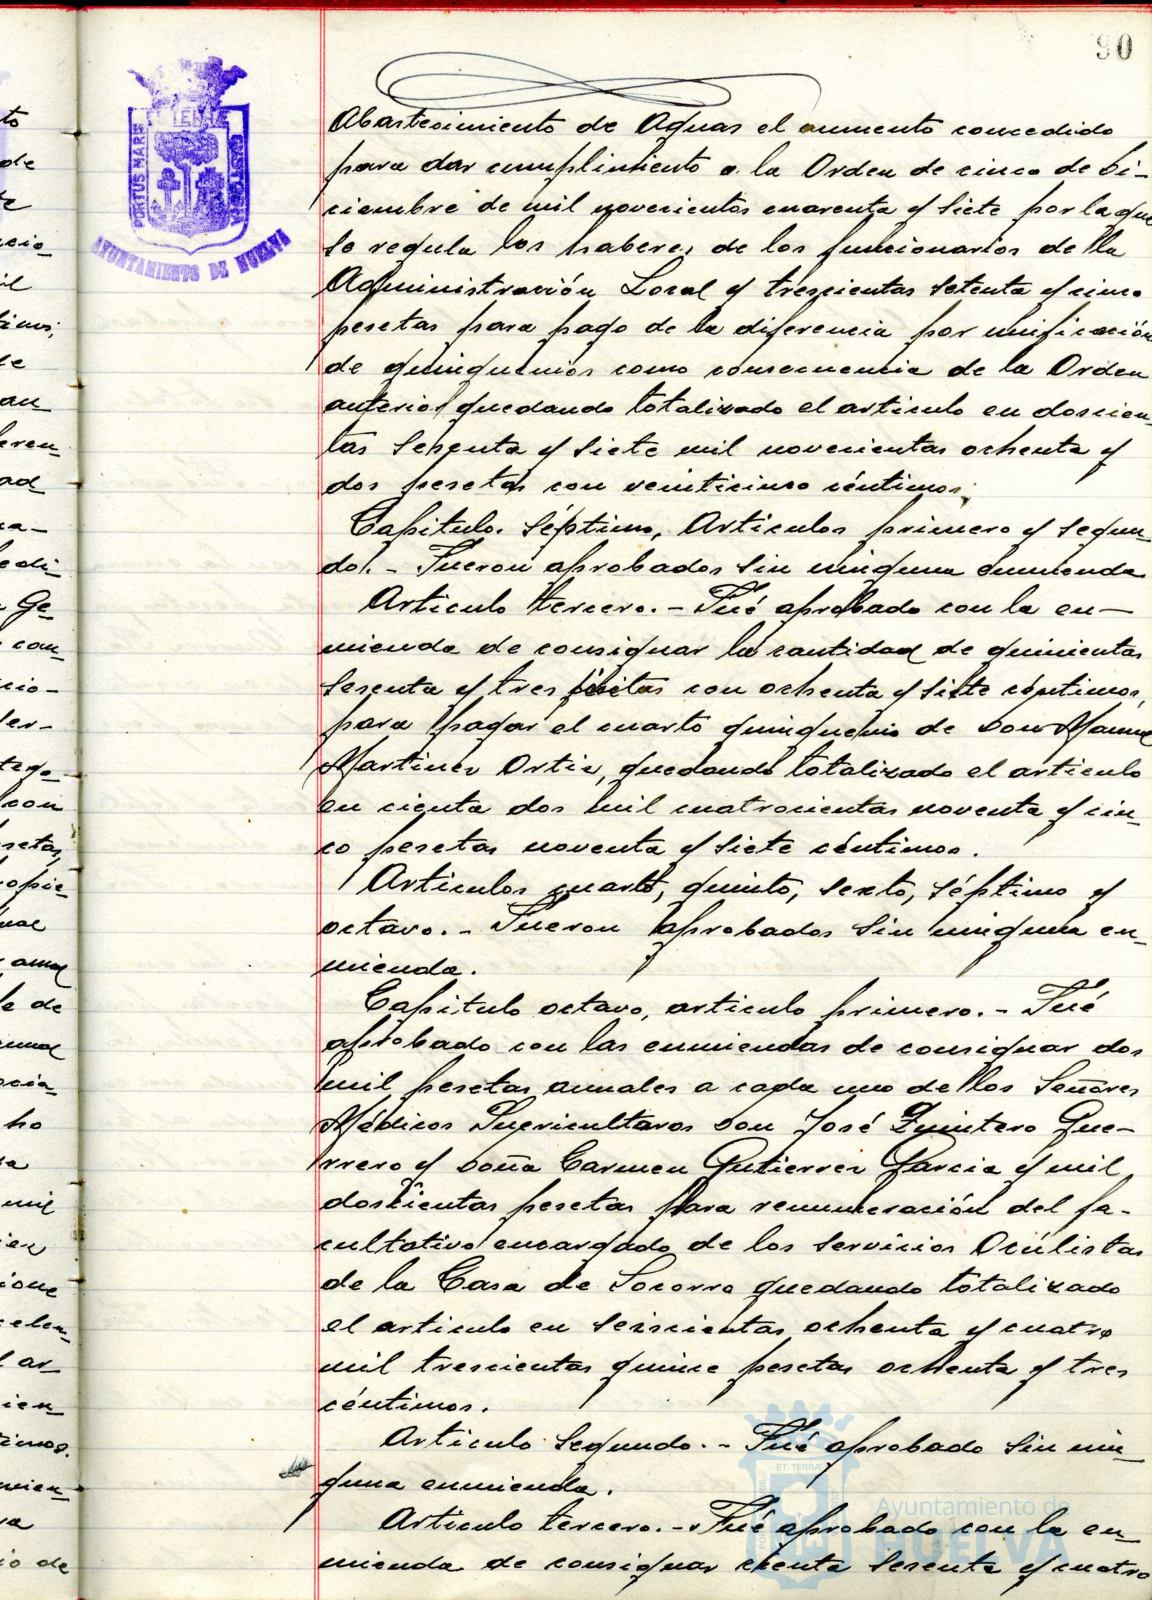 90
PORTUS MARIS
ET TERRAE CUSTODIA
AYUNTAMIENTO DE HUELVA
Abastecimiento de Aguas el aumento concedido
para dar cumplimiento a la Orden de cinco de Di-
ciembre de mil novecientos cuarenta y siete por la que
se regula los haberes de los funcionarios de la
Administración Local y trescientas setenta y cinco
pesetas para pago de la diferencia por unificación
de quinquenios como consecuencia de la Orden
anterior quedando totalizado el articulo en doscien-
tas sesenta y siete mil novecientas ochenta y
dos pesetas con veinticinco céntimos.
Capitulo. Séptimo, Articulos primero y segun-
do. - Fueron aprobados sin ninguna enmienda
Articulo tercero. - Fué aprobado con la en-
mienda de consignar la cantidad de quinientas
sesenta y tres pesetas con ochenta y siete céntimos,
para pagar el cuarto quinquenio de Don Manuel
Martinez Ortiz, quedando totalizado el articulo
en cienta dos mil cuatrocientas noventa y cin-
co pesetas noventa y siete céntimos.
Articulos cuarto, quinto, sexto, séptimo y
octavo. - Fueron aprobados sin ninguna en-
mienda.
Capitulo octavo, articulo primero. - Fué
aprobado con las enmiendas de consignar dos
mil pesetas anuales a cada uno de los Señores
Médicos Puericultores Don José Quintero Gue-
rrero y Doña Carmen Gutierrez Garcia y mil
doscientas pesetas para remuneración del fa-
cultativo encargado de los servicios Oculistas
de la Casa de Socorro quedando totalizado
el articulo en seiscientas ochenta y cuatro
mil trescientas quince pesetas ochenta y tres
céntimos.
Articulo Segundo. - Fué aprobado sin nin-
guna enmienda.
Articulo tercero. - Fué aprobado con la en-
mienda de consignar cienta sesenta y cuatro
Ayuntamiento de
HUELVA